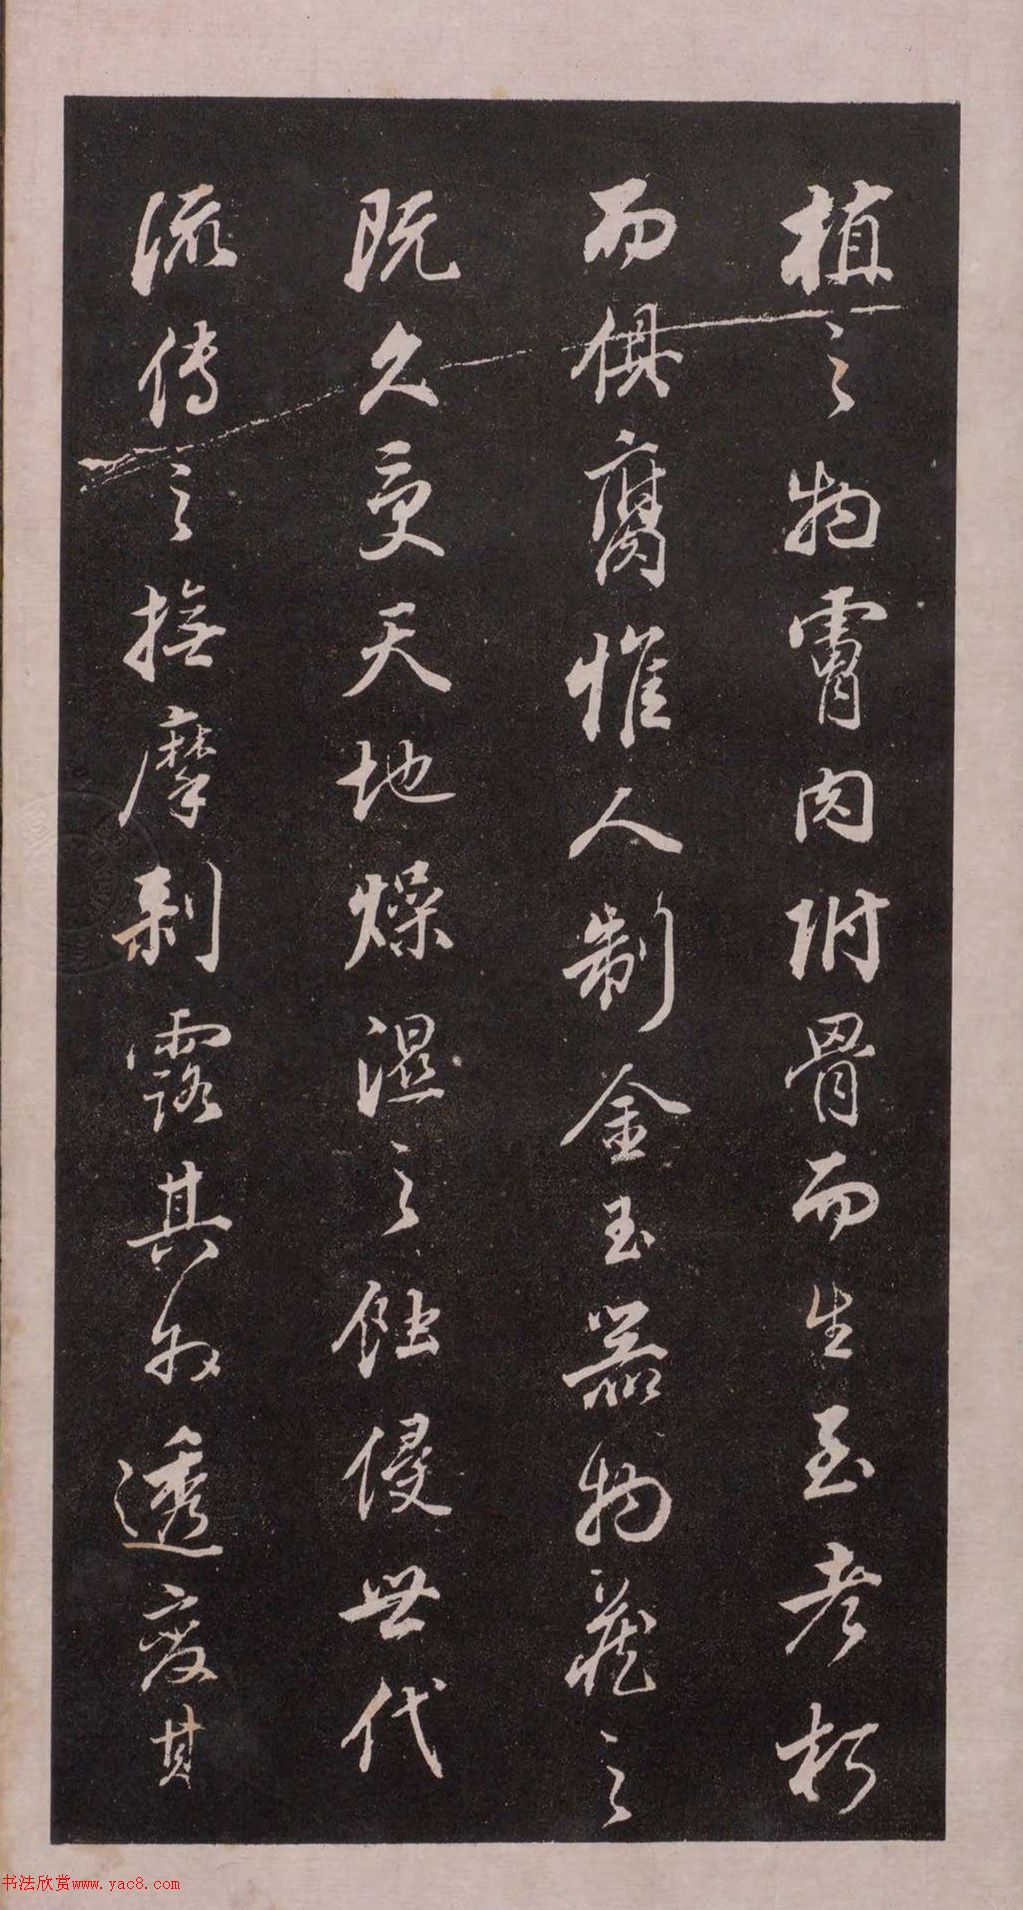 植之物膚肉附骨而生至老朽
而俱腐惟人制金玉器物藏之
既久受天地燥湿之蝕侵世代
流傳之撫摩剥露其外透变其
书法欣赏www.yac8.com